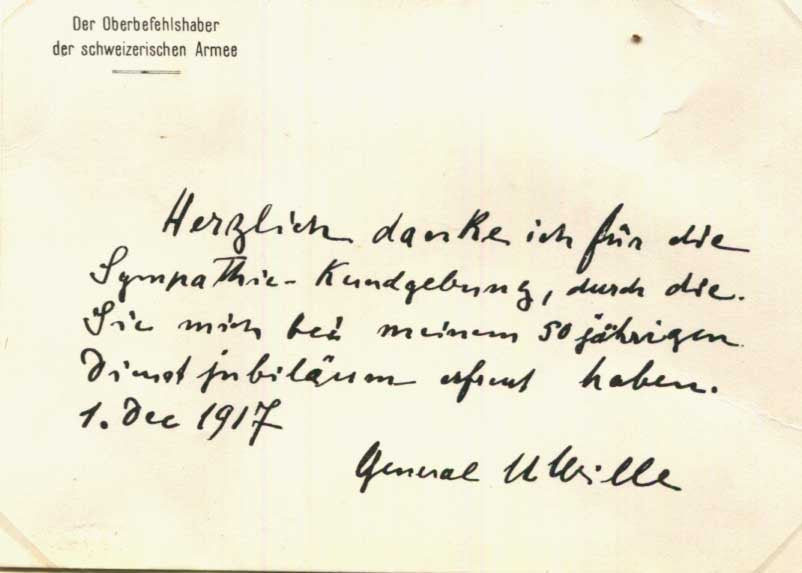 Der Oberbefehlshaber
der schweizerischen Armee
Herzlich danke ich für die
Sympathie-Kundgebung, durch die
Sie mich bei meinem 50 jährigen
Dienstjubiläum erfreut haben.
1. Dec 1917
General U Wille